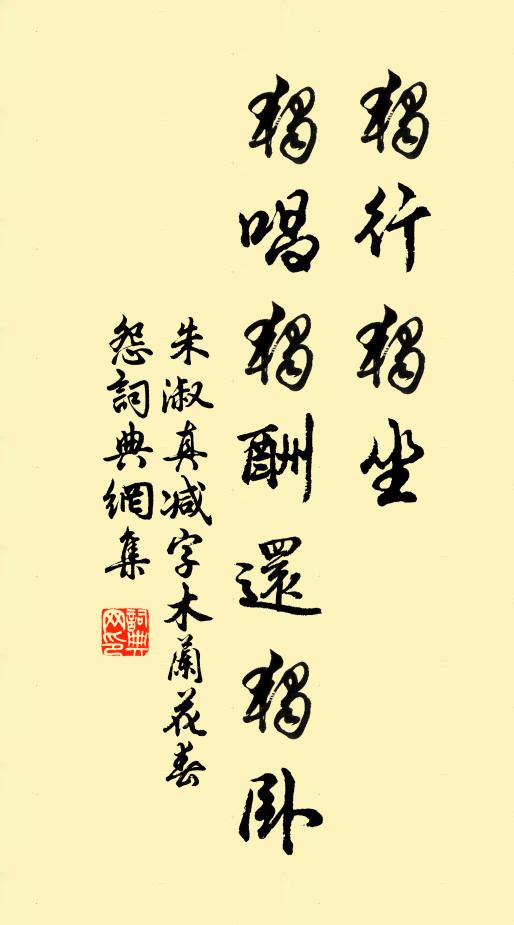 獨行獨坐
獨唱獨酬還獨卧
朱淑真减字木蘭花春
怨詞典網集
詞典
网印